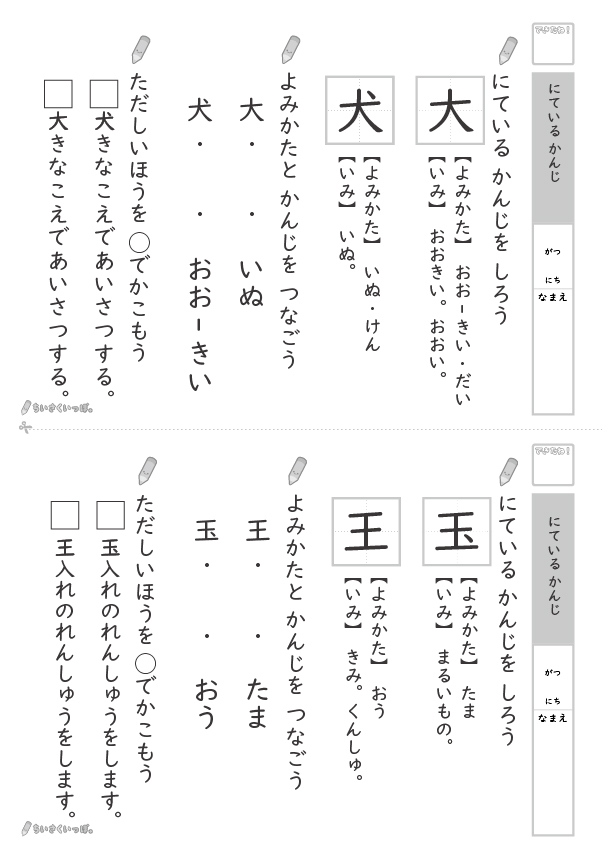 できたね！
にている かんじ
がつ
にち
なまえ
にている かんじを しろう
大
【よみかた】 おお－きい・だい
【いみ】 おおきい。おおい。
犬
【よみかた】 いぬ・けん
【いみ】 いぬ。
よみかたと かんじを つなごう
大・ ・いぬ
犬・ ・おお－きい
ただしいほうを ○でかこもう
□犬きなこえであいさつする。
□大きなこえであいさつする。
ちいさくいっぽ。
できたね！
にている かんじ
がつ
にち
なまえ
にている かんじを しろう
玉
【よみかた】 たま
【いみ】 まるいもの。
王
【よみかた】 おう
【いみ】 きみ。くんしゅ。
よみかたと かんじを つなごう
王・ ・たま
玉・ ・おう
ただしいほうを ○でかこもう
□玉入れのれんしゅうをします。
□王入れのれんしゅうをします。
ちいさくいっぽ。